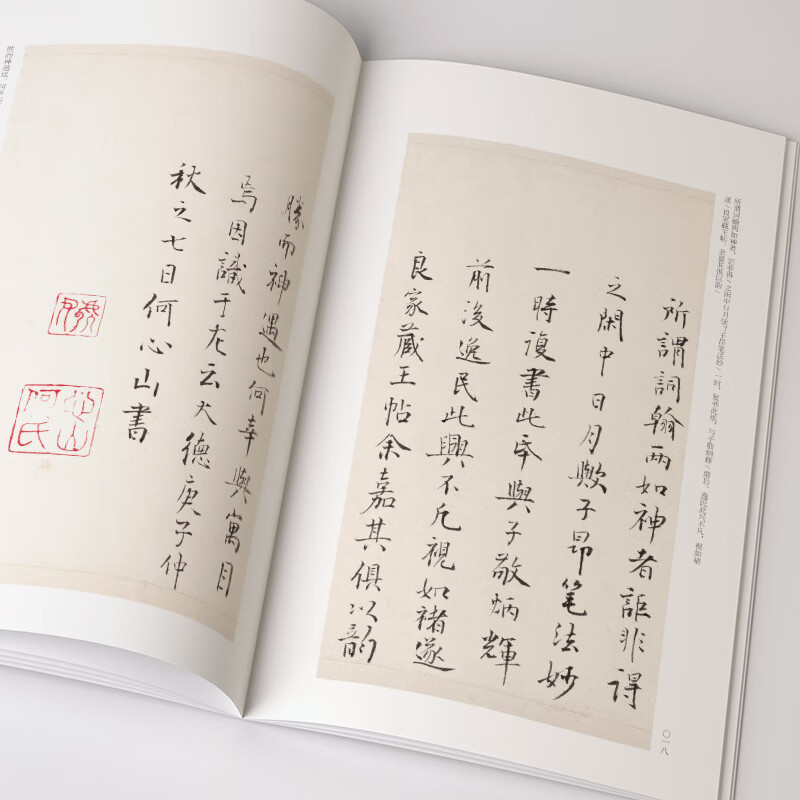 所謂詞翰兩如神者詎非得
之閑中日月歟子昂笔法妙
一時復書此帋與子敬炳輝
前後逸民此興不凡視如褚遂
良家藏王帖余嘉其俱以韵
〇一八
勝而神遇也何幸與寓目
焉因識于左云大德庚子仲
秋之七日何心山書
心山
何氏